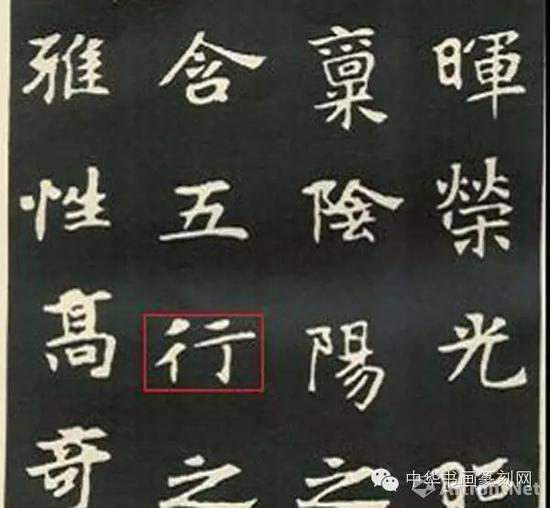 暉榮光
稟陰陽之
含五行之
雅性髙竒
中华书画篆刻网
Artron.Net